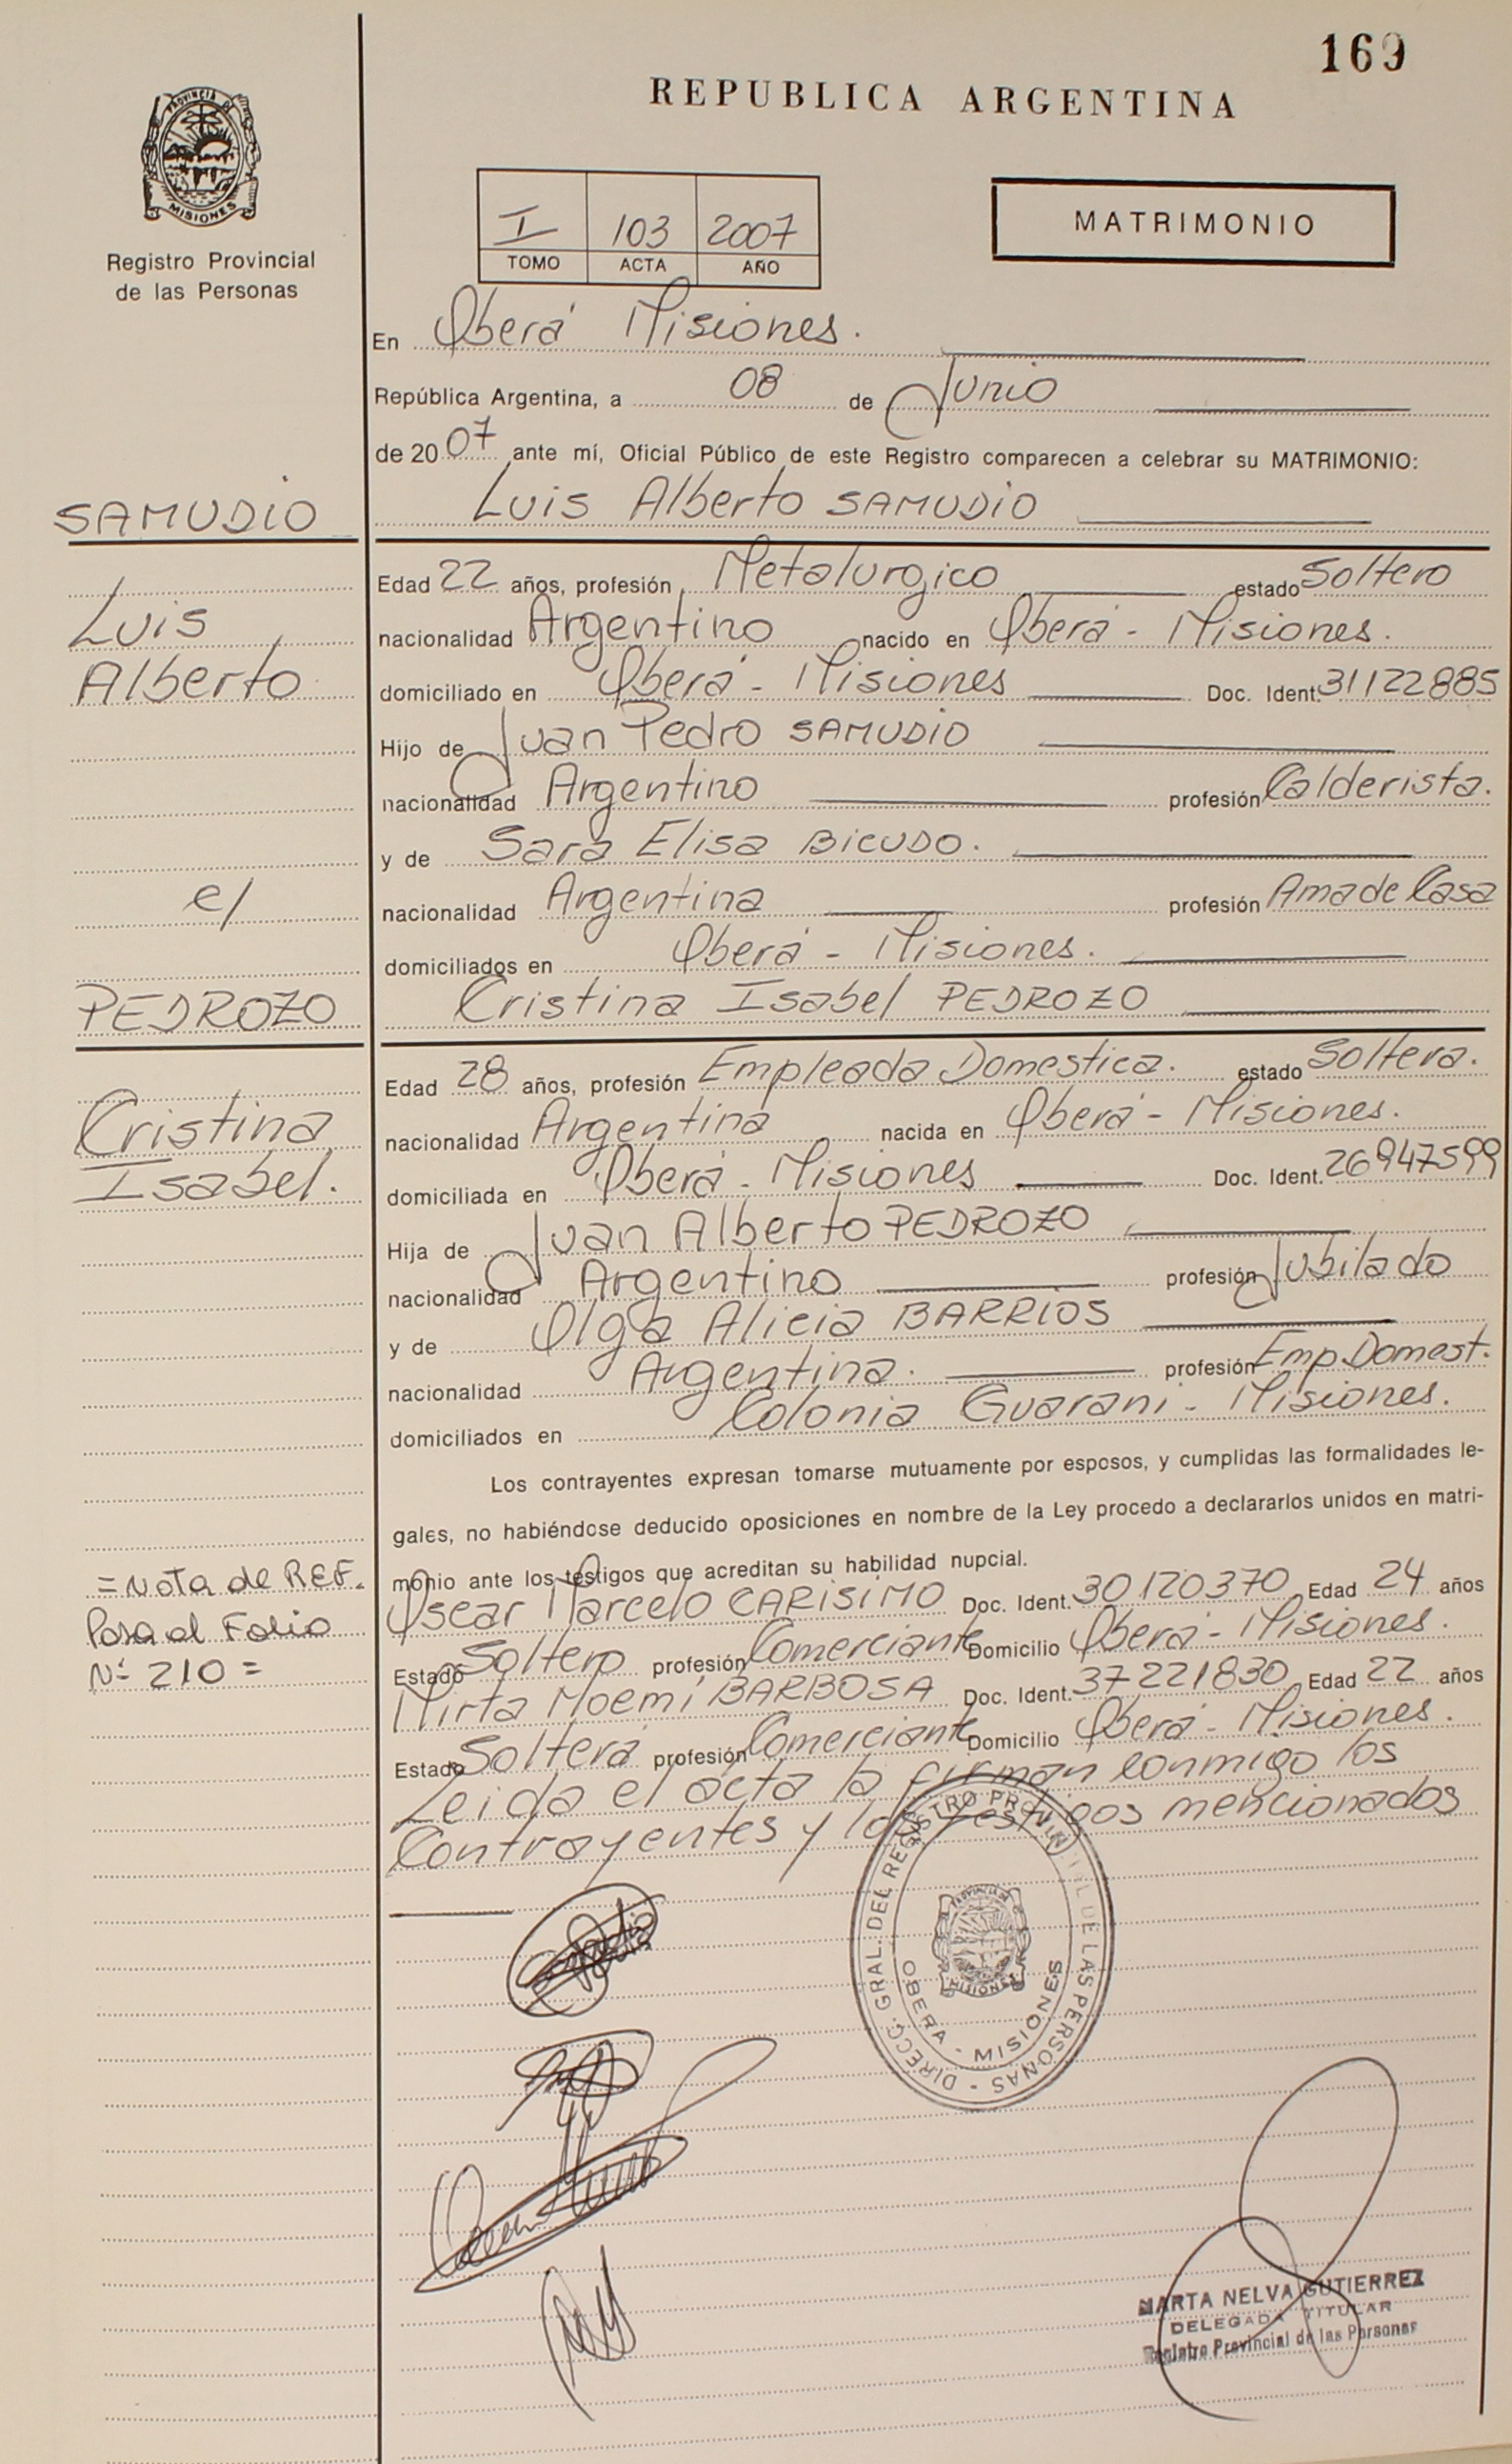 169
REPUBLICA ARGENTINA
PROVINCIA DE
MISIONES
Registro Provincial
de las Personas
I 103 2007
TOMO ACTA AÑO
MATRIMONIO
En Oberá Misiones.
República Argentina, a 08 de Junio
de 2007 ante mí, Oficial Público de este Registro comparecen a celebrar su MATRIMONIO:
SAMUDIO
Luis Alberto SAMUDIO
Edad 22 años, profesión Metalurgico estado Soltero
Luis
nacionalidad Argentino nacido en Oberá - Misiones.
Alberto
domiciliado en Oberá - Misiones Doc. Ident. 31122885
Hijo de Juan Pedro SAMUDIO
nacionalidad Argentino profesión Calderista.
y de Sara Elisa BICUDO.
e/
nacionalidad Argentina profesión Ama de Casa
domiciliados en Oberá - Misiones.
PEDROZO
Cristina Isabel PEDROZO
Edad 28 años, profesión Empleada Domestica. estado Soltera.
Cristina
nacionalidad Argentina nacida en Oberá - Misiones.
Isabel.
domiciliada en Oberá - Misiones Doc. Ident. 26947599
Hija de Juan Alberto PEDROZO
nacionalidad Argentino profesión Jubilado
y de Olga Alicia BARRIOS
nacionalidad Argentina. profesión Emp. Domest.
domiciliados en Colonia Guarani - Misiones.
Los contrayentes expresan tomarse mutuamente por esposos, y cumplidas las formalidades le-
gales, no habiéndose deducido oposiciones en nombre de la Ley procedo a declararlos unidos en matri-
monio ante los testigos que acreditan su habilidad nupcial.
= Nota de REF.
Pasa al Folio
Nº 210 =
Oscar Marcelo CARISIMO Doc. Ident. 30120370 Edad 24 años
Estado Soltero profesión Comerciante Domicilio Oberá - Misiones.
Mirta Noemí BARBOSA Doc. Ident. 37221830 Edad 22 años
Estado Soltera profesión Comerciante Domicilio Oberá - Misiones.
Leida el acta la firman conmigo los
Contrayentes y los testigos mencionados
DIRECC. GRAL. DEL REGISTRO PROVINCIAL DE LAS PERSONAS
OBERA - MISIONES
MISIONES
MARTA NELVA GUTIERREZ
DELEGADA TITULAR
Registro Provincial de las Personas